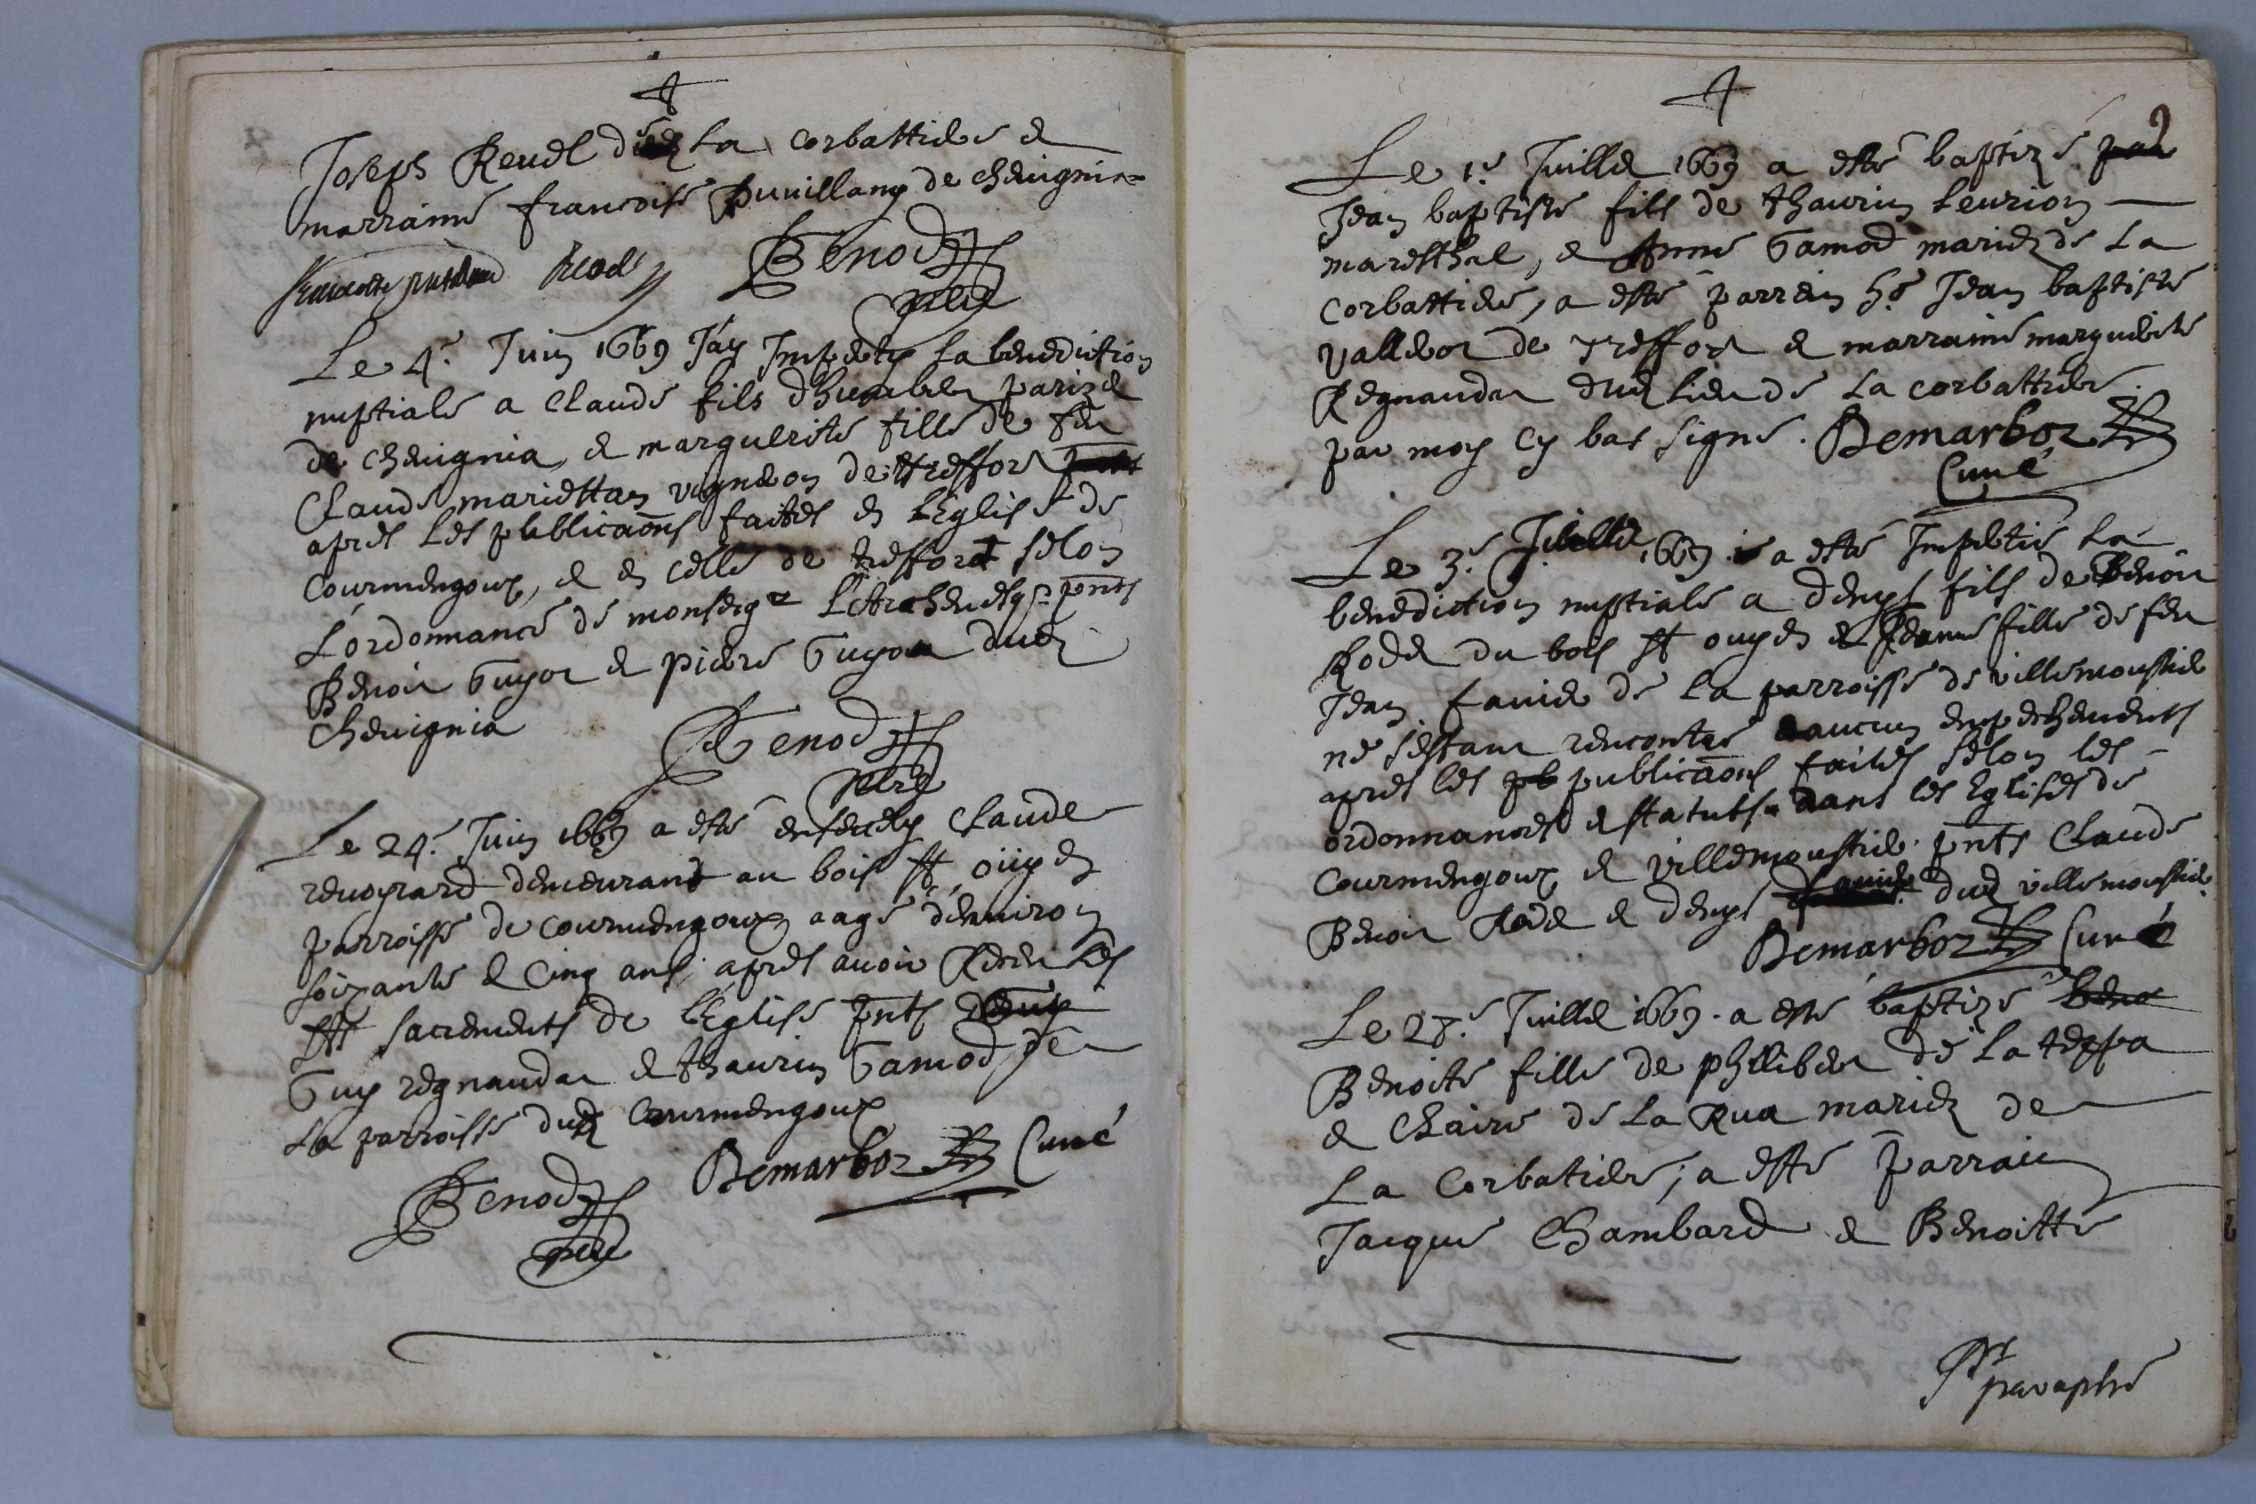 Joseph Revel de la Corbattiere et
marrainne francoise puvilland de chevignia
Benod
pbre
Le 4e. Juin 1669 J'ay Imparty la benediction
nuptiale a Claude fils dhumber parizet
de chevignia, et marguerite fille de feu
Claude mariettan vigneron de treffort
apres les publicaons faites en L'Eglise de
Courmengoux, et en celle de treffort selon
L'ordonnance de monseigr L'Archevesq: pnts
Benoit Guyot et pierre Guyot dud
Chevignia
Benod
pbre
Le 24e. Juin 1669 a esté ensevely Claude
revoyrard demeurant au bois St ouyen
parroisse de courmengoux aagé denviron
soixante et cinq ans, apres avoir Receu Les
Sts sacrements de L'Eglise pnts
Guy regnaudat et thaurin Gamod de
La parroisse dud Courmengoux
Benod Demarboz Curé
pbre
2
Le 1e. Juillet 1669 a esté baptizé par
Jean baptiste fils de thaurin Leurion
maresthal, et Anne Gamod mariez de La
Corbattiere, a esté parrain hé Jean baptiste
Vallevot de treffort et marrainne marguerite
Regnaudat dud lieu de La corbattiere
par moy cy bas signé. Demarboz
Curé
Le 3e. Juillet 1669. a esté Impartie La
benediction nuptiale a denys fils de Benoit
Rodet du bois St ouyen et Jeanne fille de feu
Jean favier de La parroisse de villemoustier
ne s'estant rencontré aucun empechements
apres les pb publicaons faites selon les
ordonnances et statuts dans les Eglises de
Courmengoux et villemoustier. pnts Claude
Benoit Rodet et denys favier dud villemoustier.
Demarboz Curé
Le 28e. Juillet 1669. a esté baptizé beno
Benoite fille de philibert de La teppa
et Claire de La Rua mariez de
La Corbatiere; a esté parrain
Jacque Chambard et Benoitte
paraphé